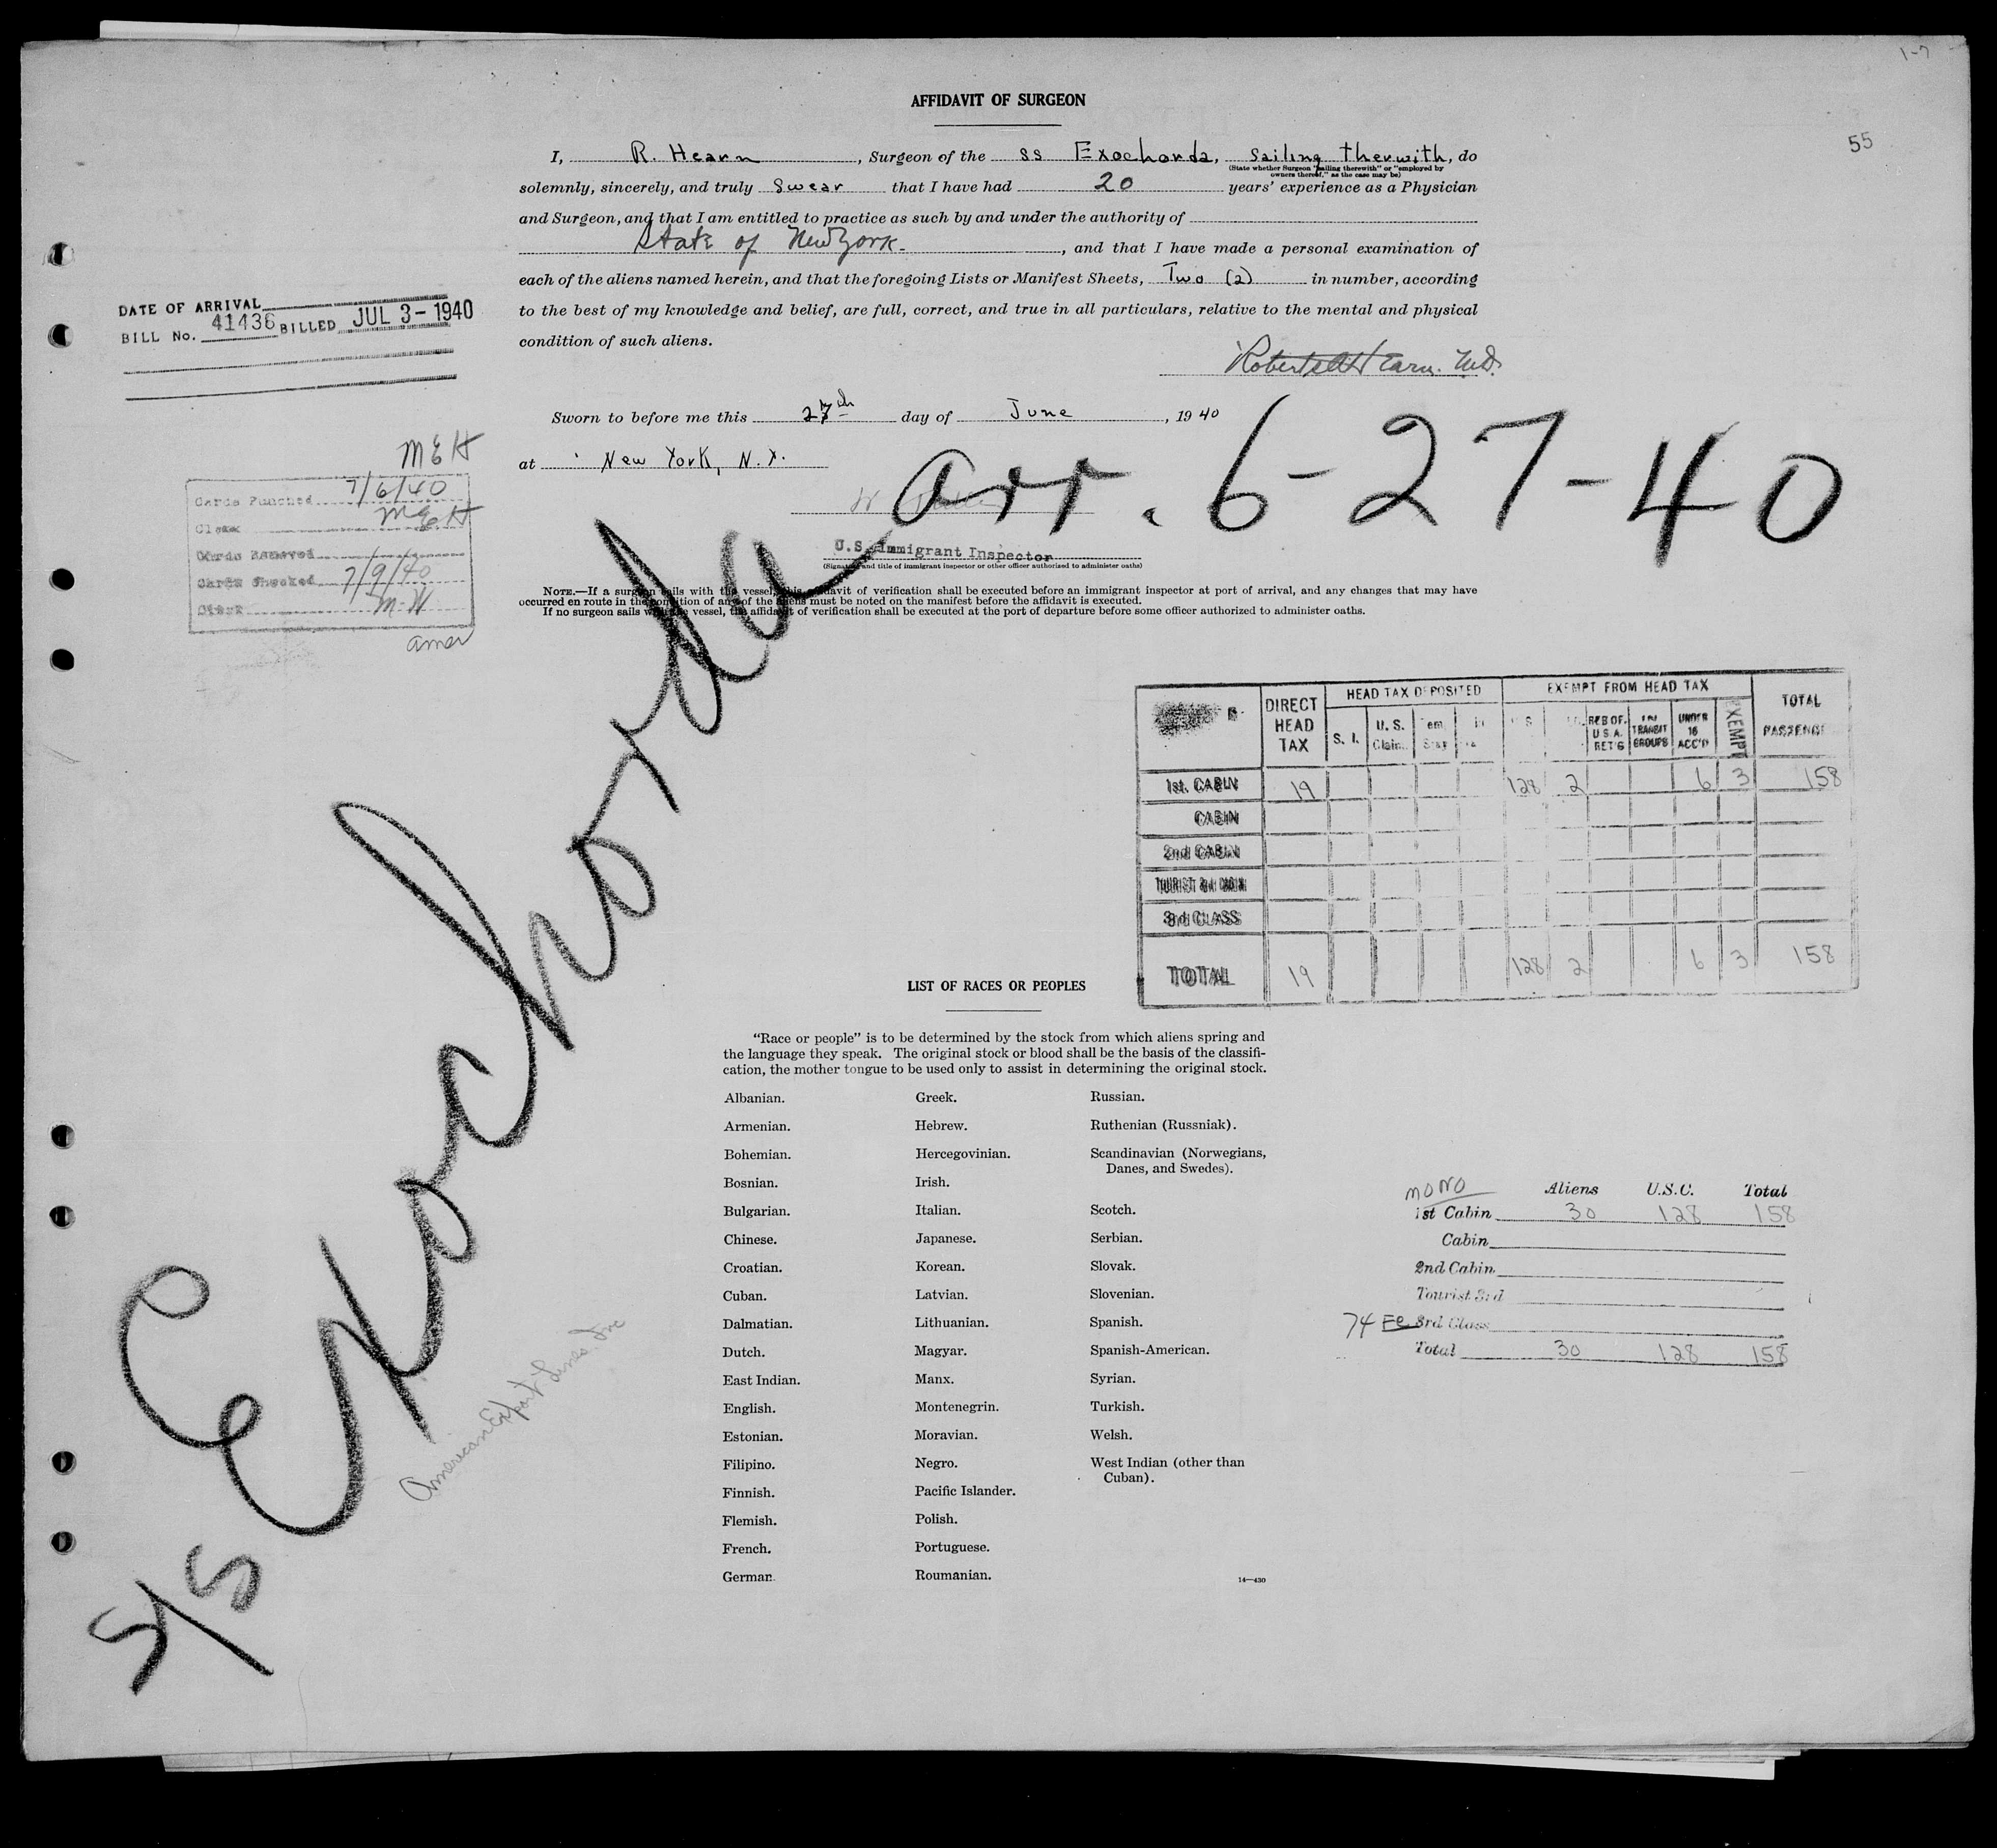 1-7
55
AFFIDAVIT OF SURGEON
I, R. Hearn, Surgeon of the ss Exochorda, Sailing therwith, do
(State whether Surgeon "sailing therewith" or "employed by
owners thereof," as the case may be)
solemnly, sincerely, and truly Swear that I have had 20 years' experience as a Physician
and Surgeon, and that I am entitled to practice as such by and under the authority of
State of New York, and that I have made a personal examination of
each of the aliens named herein, and that the foregoing Lists or Manifest Sheets, Two (2) in number, according
to the best of my knowledge and belief, are full, correct, and true in all particulars, relative to the mental and physical
condition of such aliens.
Hearn. M.D.
Sworn to before me this 27th day of June, 1940
at New York, N.Y.
arr. 6-27-40
U.S. Immigrant Inspector
(Signature and title of immigrant inspector or other officer authorized to administer oaths)
NOTE.—If a surgeon sails with the vessel, this affidavit of verification shall be executed before an immigrant inspector at port of arrival, and any changes that may have
occurred en route in the condition of any of the aliens must be noted on the manifest before the affidavit is executed.
If no surgeon sails with the vessel, the affidavit of verification shall be executed at the port of departure before some officer authorized to administer oaths.
DATE OF ARRIVAL
BILL No. 41436 BILLED JUL 3-1940
MEH
Cards Punched 7/6/40
Clerk MEH
Cards Removed
Cards Checked 7/9/40
Clerk M.W
amer
S/S Exochorda
American Export Lines Inc
DIRECT HEAD TAX
HEAD TAX DEPOSITED
EXEMPT FROM HEAD TAX
TOTAL PASSENGE
S. I. U. S. Claim. Tem. Stay U S RES OF U S A RET'G IN TRANSIT GROUPS UNDER 16 ACC'D EXEMPT
1st. CABIN 19 128 2 6 3 158
CABIN
2nd CABIN
TOURIST 3rd CABIN
3rd CLASS
TOTAL 19 128 2 6 3 158
LIST OF RACES OR PEOPLES
"Race or people" is to be determined by the stock from which aliens spring and
the language they speak. The original stock or blood shall be the basis of the classifi-
cation, the mother tongue to be used only to assist in determining the original stock.
Albanian.
Armenian.
Bohemian.
Bosnian.
Bulgarian.
Chinese.
Croatian.
Cuban.
Dalmatian.
Dutch.
East Indian.
English.
Estonian.
Filipino.
Finnish.
Flemish.
French.
German.
Greek.
Hebrew.
Hercegovinian.
Irish.
Italian.
Japanese.
Korean.
Latvian.
Lithuanian.
Magyar.
Manx.
Montenegrin.
Moravian.
Negro.
Pacific Islander.
Polish.
Portuguese.
Roumanian.
Russian.
Ruthenian (Russniak).
Scandinavian (Norwegians,
Danes, and Swedes).
Scotch.
Serbian.
Slovak.
Slovenian.
Spanish.
Spanish-American.
Syrian.
Turkish.
Welsh.
West Indian (other than
Cuban).
14—430
MONO Aliens U.S.C. Total
1st Cabin 30 128 158
Cabin
2nd Cabin
Tourist 3rd
74 Fe 3rd Class
Total 30 128 158